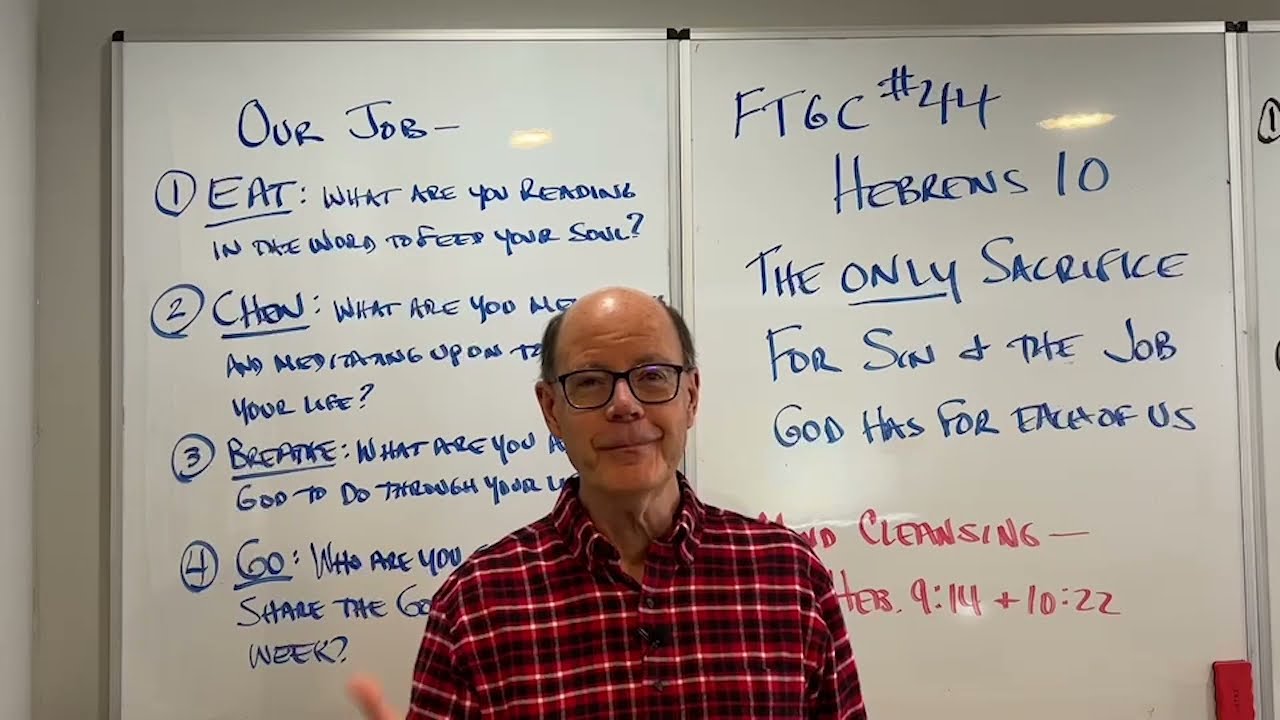 OUR JOB—
① EAT: WHAT ARE YOU READING
IN THE WORD TO FEED YOUR SOUL?
② CHEW: WHAT ARE YOU
AND MEDITATING UPON
YOUR LIFE?
③ BREATHE: WHAT ARE YOU
GOD TO DO THROUGH YOUR
④ GO: WHO ARE YOU
SHARE THE
WEEK?
FTGC #244
HEBREWS 10
THE ONLY SACRIFICE
FOR SIN & THE JOB
GOD HAS FOR EACH OF US
CLEANSING—
HEB. 9:14 + 10:22